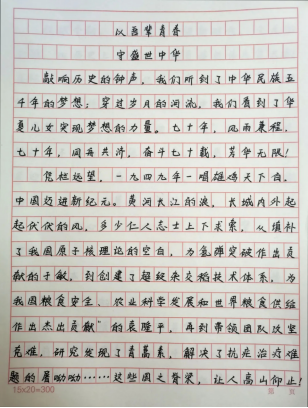 以吾辈青春
守盛世中华
敲响历史的钟声，我们听到了中华民族五
千年的梦想；穿过岁月的河流，我们看到了华
夏儿女实现梦想的力量。七十年，风雨兼程，
七十年，同舟共济，奋斗七十载，芳华无限！
凭栏远望，一九四九年一唱雄鸡天下白，
中国迈进新纪元。黄河长江的浪，长城内外起
起伏伏的风，多少仁人志士上下求索，从填补
了我国原子核理论的空白，为氢弹突破作出贡
献的于敏，到创建了超级杂交稻技术体系，为
我国粮食安全、农业科学发展和世界粮食供给
作出杰出贡献"的袁隆平，再到带领团队攻坚
克难，研究发现了青蒿素，解决了抗疟治疗难
题的屠呦呦……这些国之脊梁，让人高山仰止！
15×20=300
页